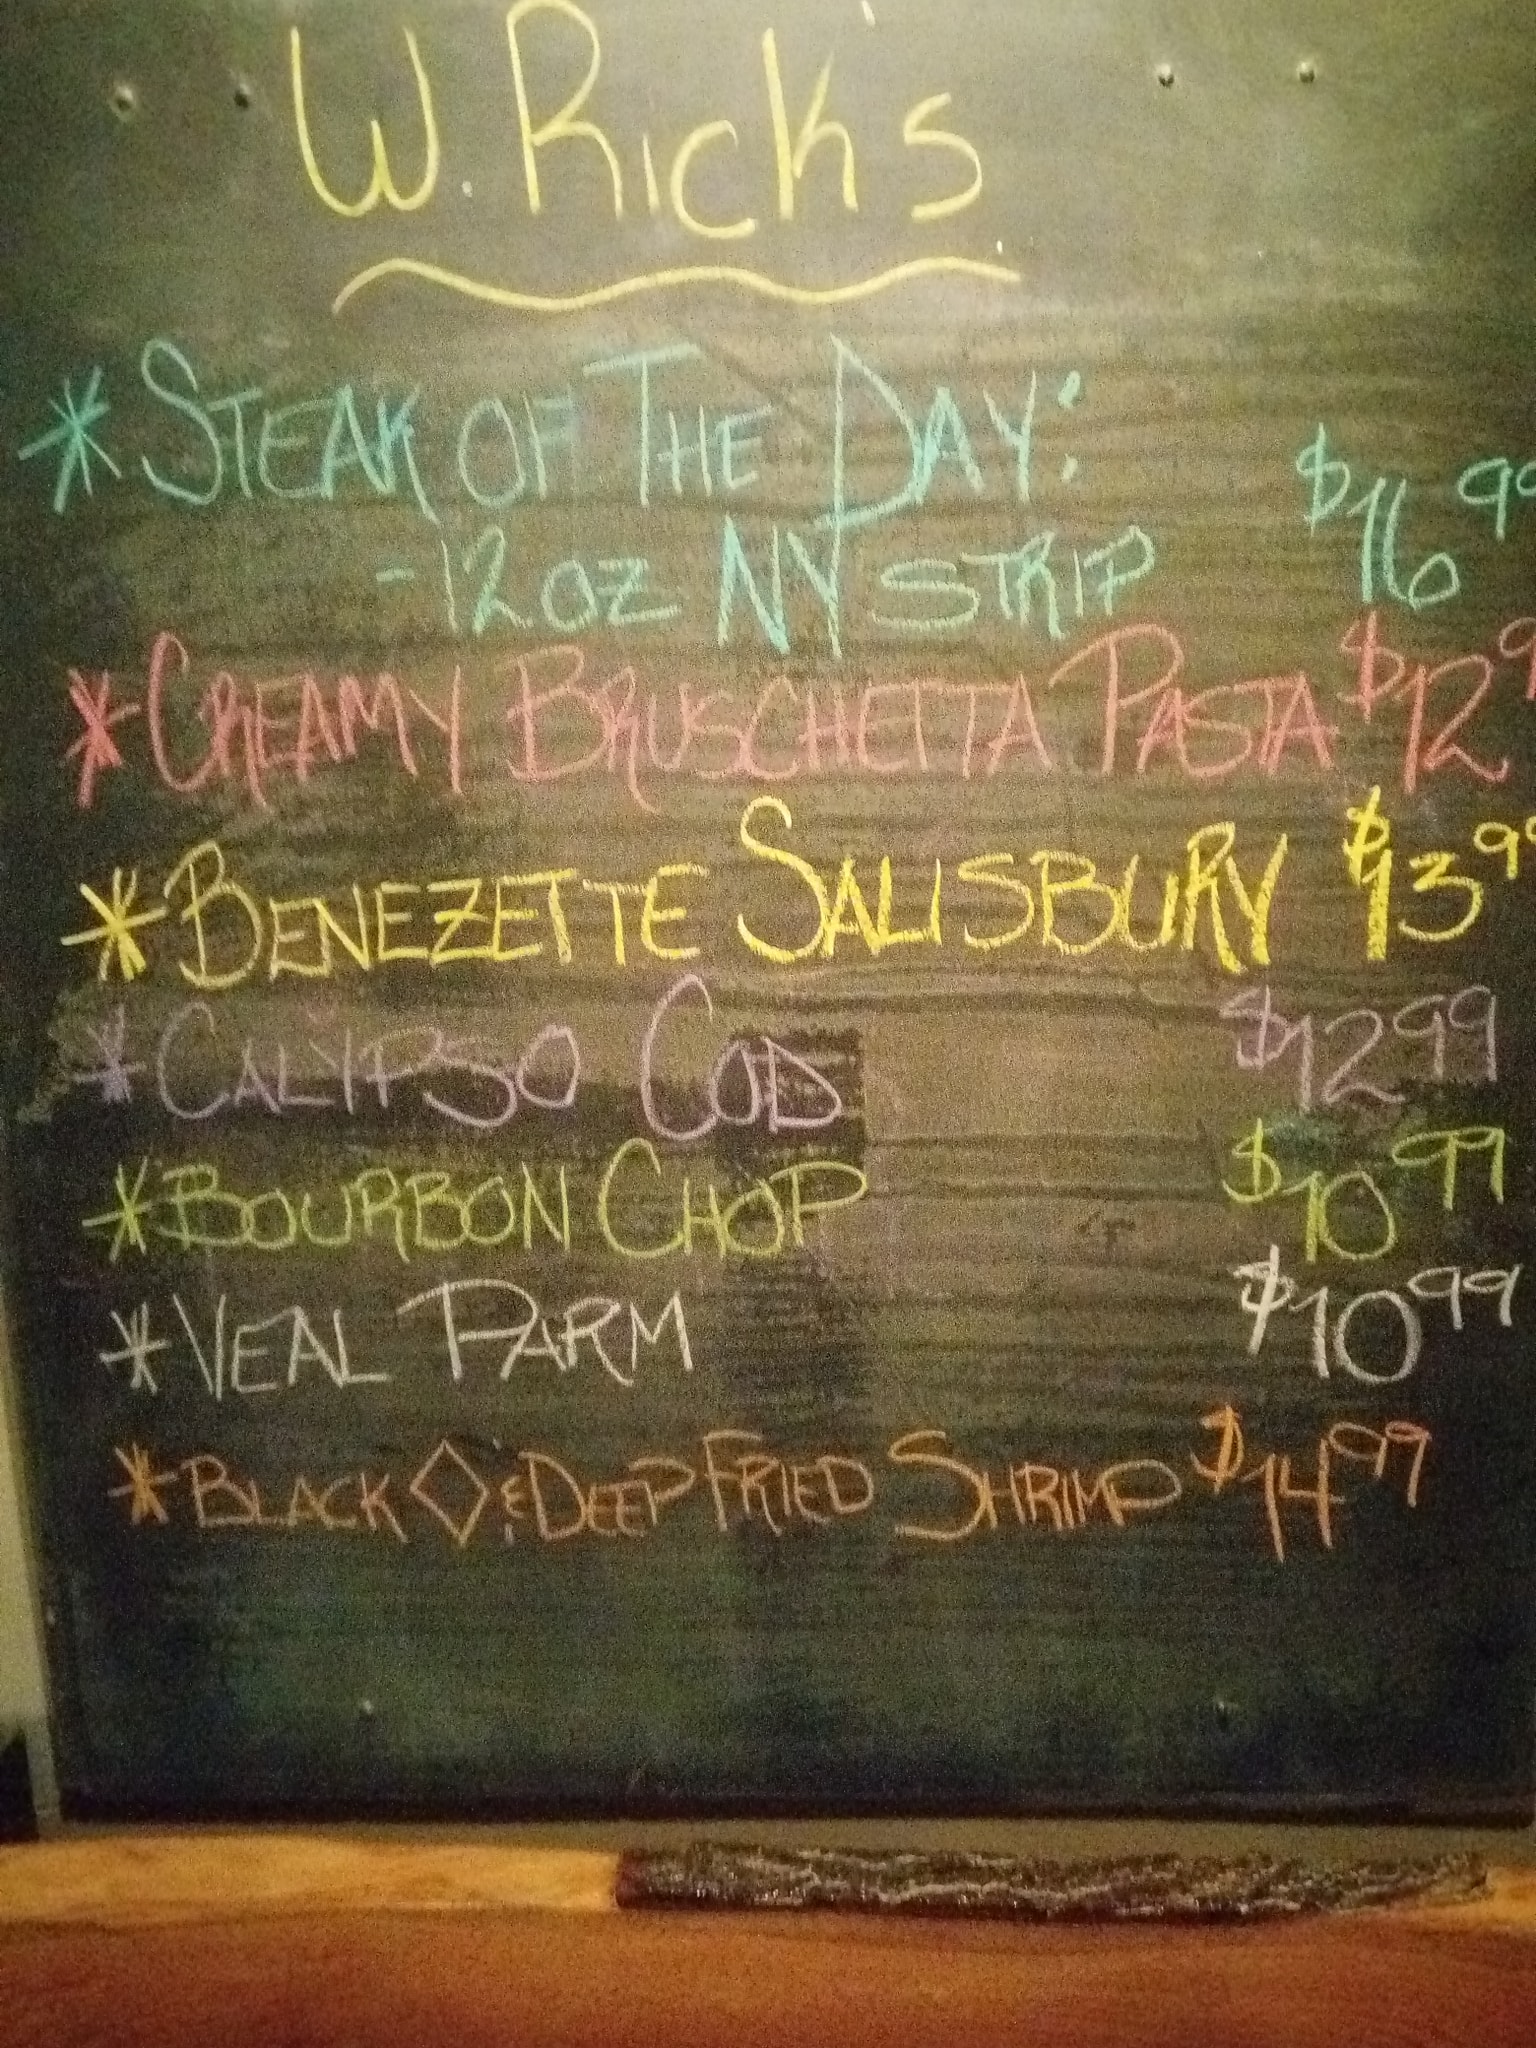 W. Rick's
* STEAK OF THE DAY:
-12 OZ NY STRIP $16.99
* CREAMY BRUSCHETTA PASTA $12.9
* BENEZETTE SALISBURY $13.99
* CALYPSO COD $12.99
* BOURBON CHOP $10.99
* VEAL PARM $10.99
* BLACK ◇ & DEEP FRIED SHRIMP $14.99